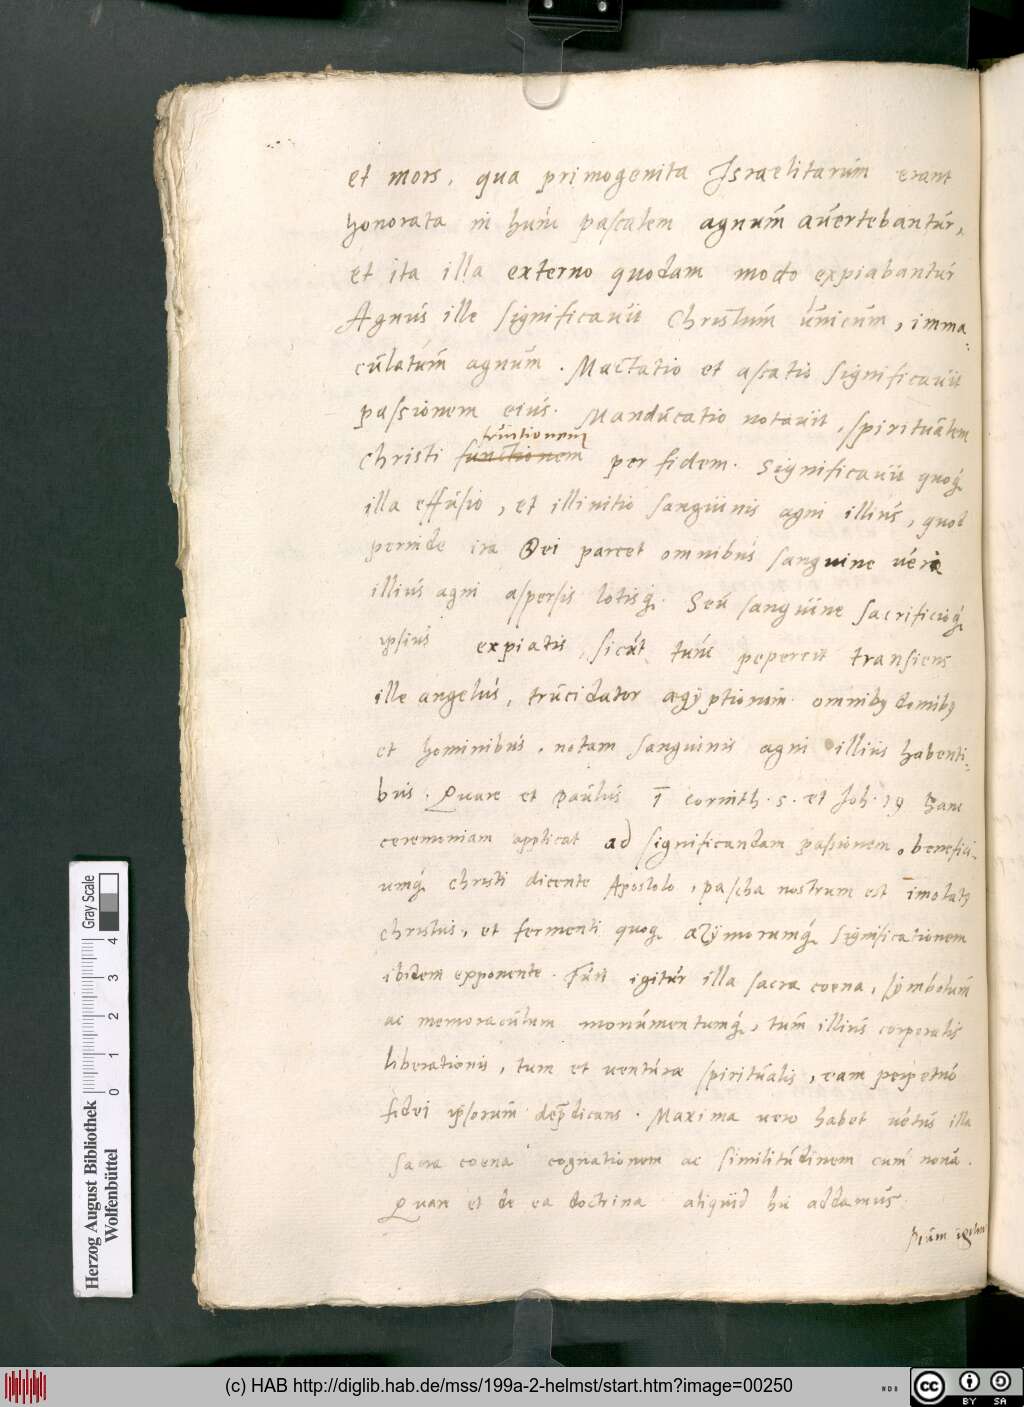 et mors, qua primogenita Israelitarum erant
honorata in hunc pascalem agnum auertebantur,
et ita illa externo quodam modo expiabantur
Agnus ille significauit Christum vnicum, imma-
culatum agnum. Mactatio et assatio significauit
passionem eius. Manducatio notauit, spiritualem
fruitionem
Christi functionem per fidem. Significauit quoq́
illa effusio, et illinitio sanguinis agni illius, quod
perinde ira Dei parcet omnibus sanguine vero
illius agni aspersis lotisq́. Seu sanguine sacrificioq́
ipsius expiatis, sicut tunc pepercit transiens
ille angelus, trucidator ægyptiorum omnibꝫ domibꝫ
et hominibus, notam sanguinis agni illius habenti-
bus. Quare et Paulus 1 Corinth. 5. et Joh. 19 hanc
ceremoniam applicat ad significandam passionem, benefici-
umq́ christi dicente Apostolo, pascha nostrum est imolatꝰ
christus, et fermenti quoq azymorumq́ significationem
ibidem exponente. Fuit igitur illa sacra coena, symbolum
ac memoraculum monumentumq́, tum illius corporalis
liberationis, tum et venturæ spiritualis, eam perpetuo
fidei ipsorum dep̄dicans. Maxima vero habet vetus illa
sacra coena cognationem ac similitudinem cum noua.
Quare et de ea doctrina aliquid hic addamus.
igitur
Herzog August Bibliothek
Wolfenbüttel
0 1 2 3 4
Gray Scale
(c) HAB http://diglib.hab.de/mss/199a-2-helmst/start.htm?image=00250
cc
BY SA